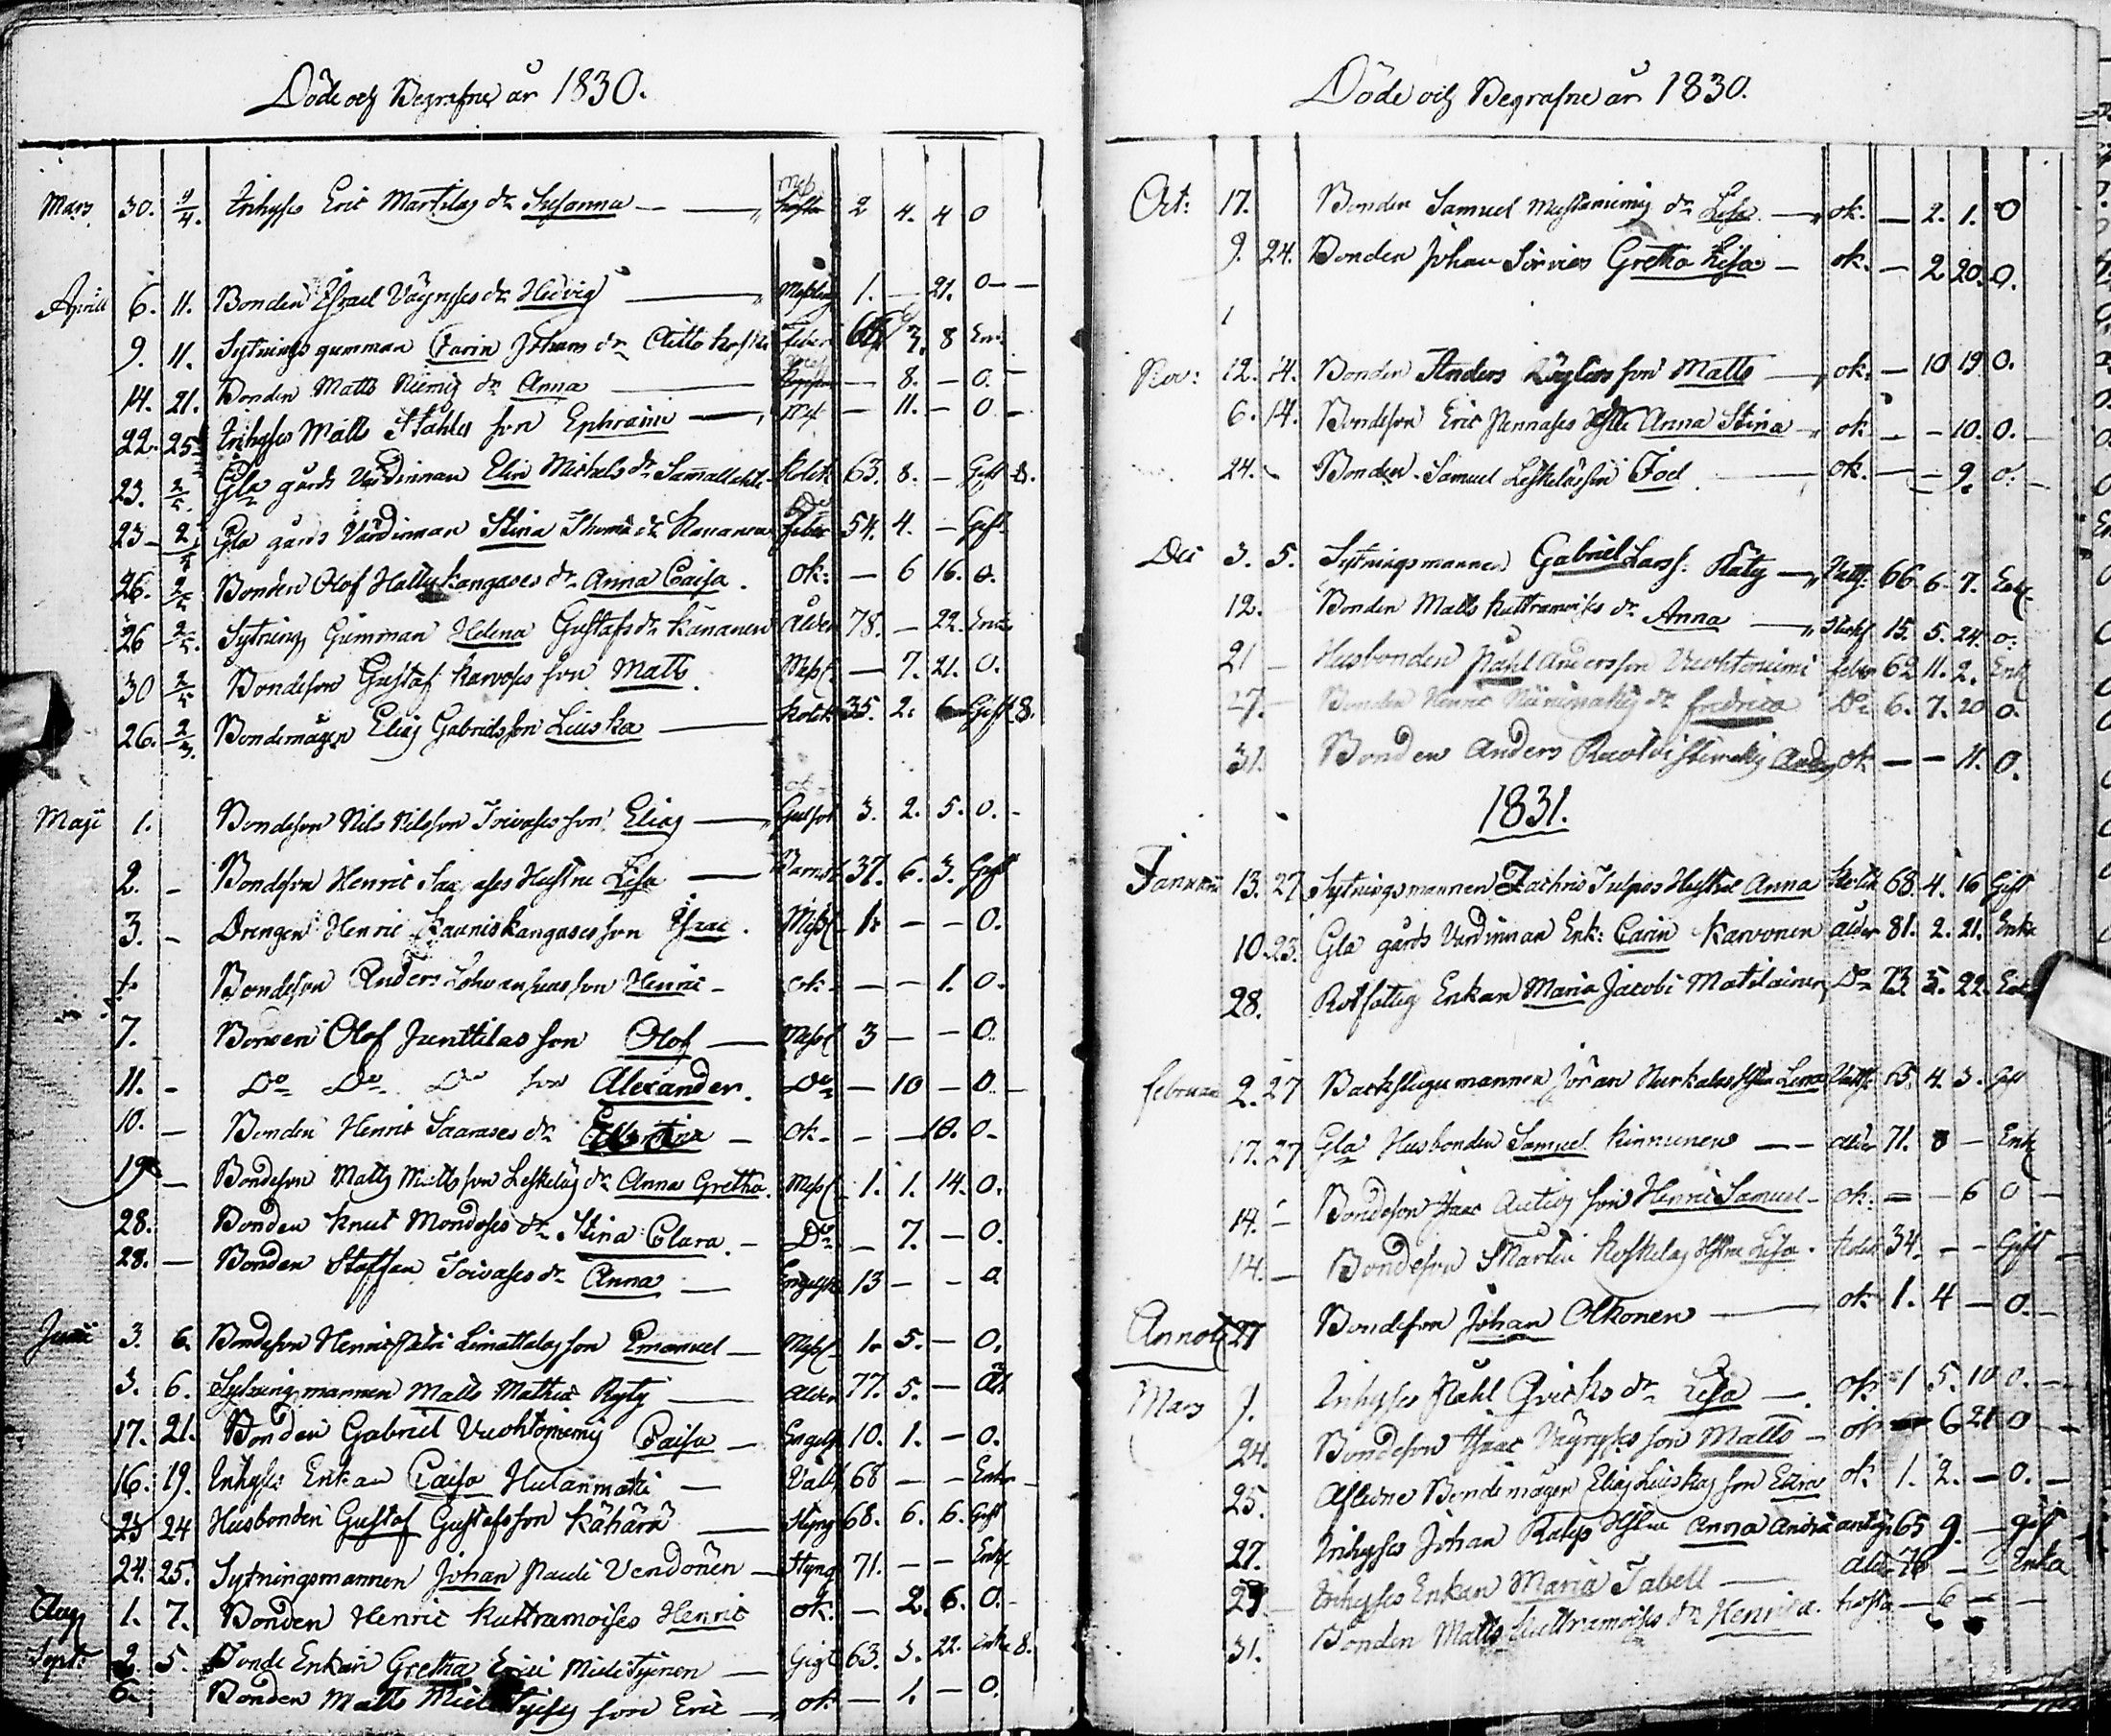 Döde och Begrafne år 1830.
Mars 30. 4/4. Inhyses Eric Martilas dr Susanna — 2 4. 4 0
Aprill 6. 11. Bonden Israel Väyryses dr Hedvig — Messling 1. — 21. 0
9. 11. Sytnings gumman Carin Johans dr feber 7. 8 Enk.
14. 21. Bonden Matts Niemis dr Anna — — 8. — 0.
22. 25. Inhyses Matts Ståhles son Ephraim — — 11. — 0
23. 2/5. Gla gårds Värdinnan Elin Michels dr Kolik 63. 8. — Gift 8.
23 — 2/5 Gla gårds Värdinnan Stina Thomæ dr Kananen feber 54. 4. — Gift.
26. 2/5 Bonden Olof Hallykangases dr Anna Caisa. ok: — 6 16. 0.
26 2/5. Sytnings Gumman Helena Gustafs dr Kananen Ålder 78. — 22. Enka
30 2/5 Bondeson Gustaf Karvoses son Matts. Messl. — 7. 21. 0.
26. 2/3. Bondemågen Elias Gabrielsson Liuska — Kolik 35. 2. 6 Gift 8.
Maji 1. Bondeson Nils Nilsson Toivases son Elias — Gulsot 3. 2. 5. 0.
2. — Bondeson Henric Saarases Hustru Lisa — Barns 37. 6. 3. Gift
3. — Drengen Henric Kauniskangases son Isaac. Messl 1. — — 0.
Bondeson Anders son Henric — ok. — — 1. 0.
7. Bonden Olof Junttilas son Olof — Messl 3 — — 0.
11. — Do Do Do son Alexander. Do — 10 — 0.
10. — Bonden Henric Saarases dr — ok. — — 18. 0.
19 — Bondeson Matts Mattsson Leskeläs dr Anna Gretha. Messl 1. 1. 14. 0.
28. Bonden Knut Mondoses dr Stina Clara. — Do — 7. — 0.
28. — Bonden Staffan Toivases dr Anna — Engelsk 13 — — 0
Junii 3. 6. Bondeson Henric Petri Limattalas son Emanuel — Messl. 1. 5. — 0.
3. 6. Sytningsmannen Matts Mathiæ Ryty — Ålder 77. 5. —
17. 21. Bonden Gabriel Vuohtoniemis Caisa — Engelsk 10. 1. — 0.
16. 19. Inhyses Enkan Caisa — Vatt 68 — — Enka
23 24 Husbonden Gustaf Gustafsson Kähärä — Styng 68. 6. 6. Gift
24. 25. Sytningsmannen Johan Pauli Vendonen — Styng 71. — — Enkl
Aug 1. 7. Bonden Henric Kuttramoises Henric ok. — 2. 6. 0.
Sept: 2. 5. Bonde Enkan Gretha Erici Mielityinen — Gigt 63. 3. 22. Enka 8.
6. Bonden Matts son Eric — ok. — 1. — 0.
Döde och Begrafne år 1830.
Oct: 17. Bonden Samuel Mustaniemis dr Lisa. — ok. — 2. 1. 0
9. 24. Bonden Johan Sirvies Gretha Lisa — ok. — 2 20. 0.
Nov: 12. 14. Bonden Anders son Matts — ok. — 10 19 0.
6. 14. Bondeson Eric Pennases Anna Stina — ok — — 10. 0.
24. — Bonden Samuel Leskeläs son Joel — ok. — — 9. 0.
Dec 3. 5. Sytningsmannen Gabriel Larss. Räty — Vatts. 66. 6. 7. Enkl
12. Bonden Matts Kuttramoises dr Anna — 15. 5. 24. 0.
21 — Husbonden Påhl Andersson Vuohtoniemi feber 62 11. 2. Enkl
27. — Bonden Henric Niinimakis dr Fredrica Do 6. 7. 20 0.
31. Bonden Anders Anders ok — — 11. 0.
1831.
Januarii 13. 27. Sytningsmannen Zachris Tulpos Hustru Anna Kolik 68. 4. 16 Gift
10. 23. Gla gårds Värdinnan Enk: Carin Karvonen Ålder 81. 2. 21. Enka
28. Rotfattig Enkan Maria Jacobi Matilainen Do 73. 5. 22. Enk
Februari 2. 27 Backstugumannen Jöran Nurkalas Hstru Lena 65. 4. 3. Gift
17. 27 Gla Husbonden Samuel Kinnunen — — Ålder 71. 8 — Enkl
14. — Bondeson Isaac Auties son Henric Samuel — ok. — — 6 0 —
14. — Bondeson Martin Koskelas Hstru Lisa. Kolik 34. — — Gift
Annot. 27 Bondeson Johan Olkonen — ok. 1. 4 — 0.
Mars 9. Inhyses Påhl dr Lisa — ok. 1 5. 10 0.
24. Bondeson Isaac Väyryses son Matts — ok 6 21 0
25. Afledne Bondemågen Elias Liuskas son Esra ok. 1. 2. — 0.
27. Inhyses Johan Hstru Anna Andræ 65 9. — gift
29. — Inhyses Enkan Maria Tabell — Ålder 76 — — Enka
31. Bonden Matts Kuttramoises dr Henrica. hosta — 6 — —